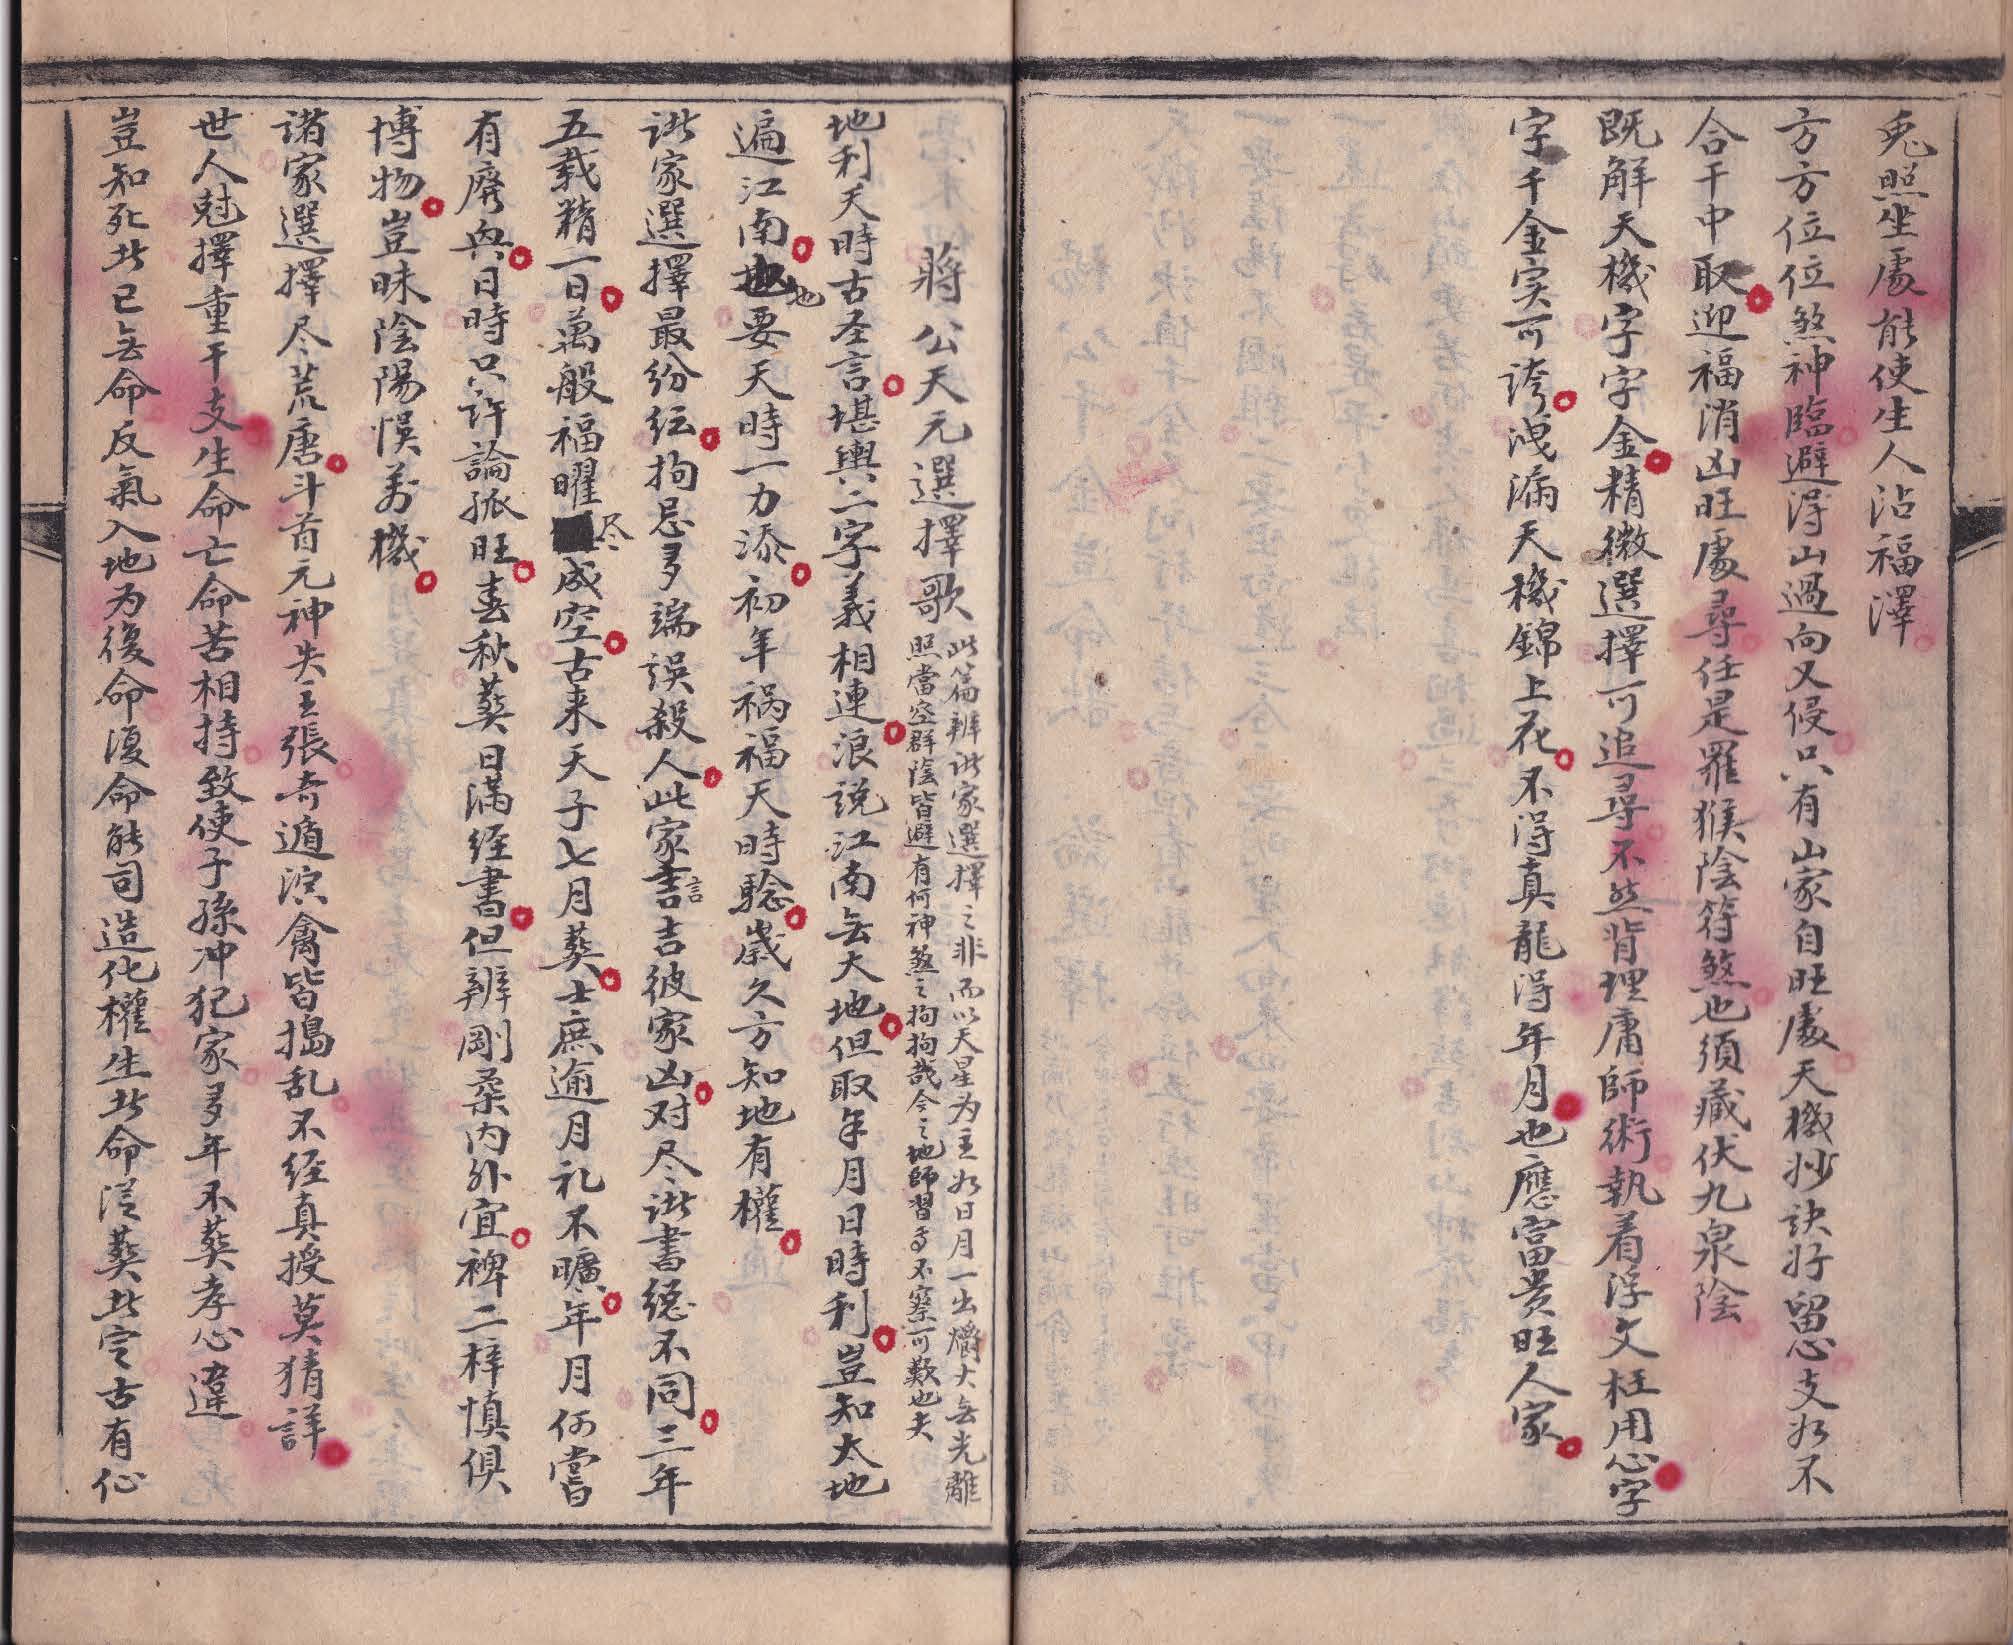 兎照坐處能使生人沾福澤
方方位位煞神臨避得山過向又侵只有山家自旺處天機妙訣好留心支如不
合干中取迎福消凶旺處尋任是羅猴陰符煞也須藏伏九泉陰
既解天機字字金精微選擇可追尋不然背理庸師術執着浮文枉用心字
字千金实可誇洩漏天機錦上花不得真龍得年月也應富贵旺人家
蔣公天元選擇歌
此篇辨诸家選擇之非而以天星为主如日月一出爝火无光離
照當空群陰皆避有何神煞之拘拘哉今之地師習而不察可歎也夫
地利天時古圣言堪輿二字義相連浪説江南无大地但取年月日時利豈知大地
遍江南地要天時一力添初年祸福天時驗歲久方知地有權
诸家選擇最纷纭拘忌多端误殺人此家言吉彼家凶对尽诸書緫不同三年
五载精一日萬般福曜尽成空古来天子七月葵士庶逾月礼不曠年月何嘗
有廃與日時只许論孤旺春秋葵日满经書但辨剛柔内外宜裨二梓慎俱
博物豈昧陰陽悮萬機
諸家選擇尽荒唐斗首元神失主張奇遁演禽皆搗乱不经真授莫猜詳
世人尅擇重干支生命亡命苦相持致使子孫冲犯家多年不葵孝心違
豈知死者已无命反氣入地为復命復命能司造化權生者命從葵者定古有仙